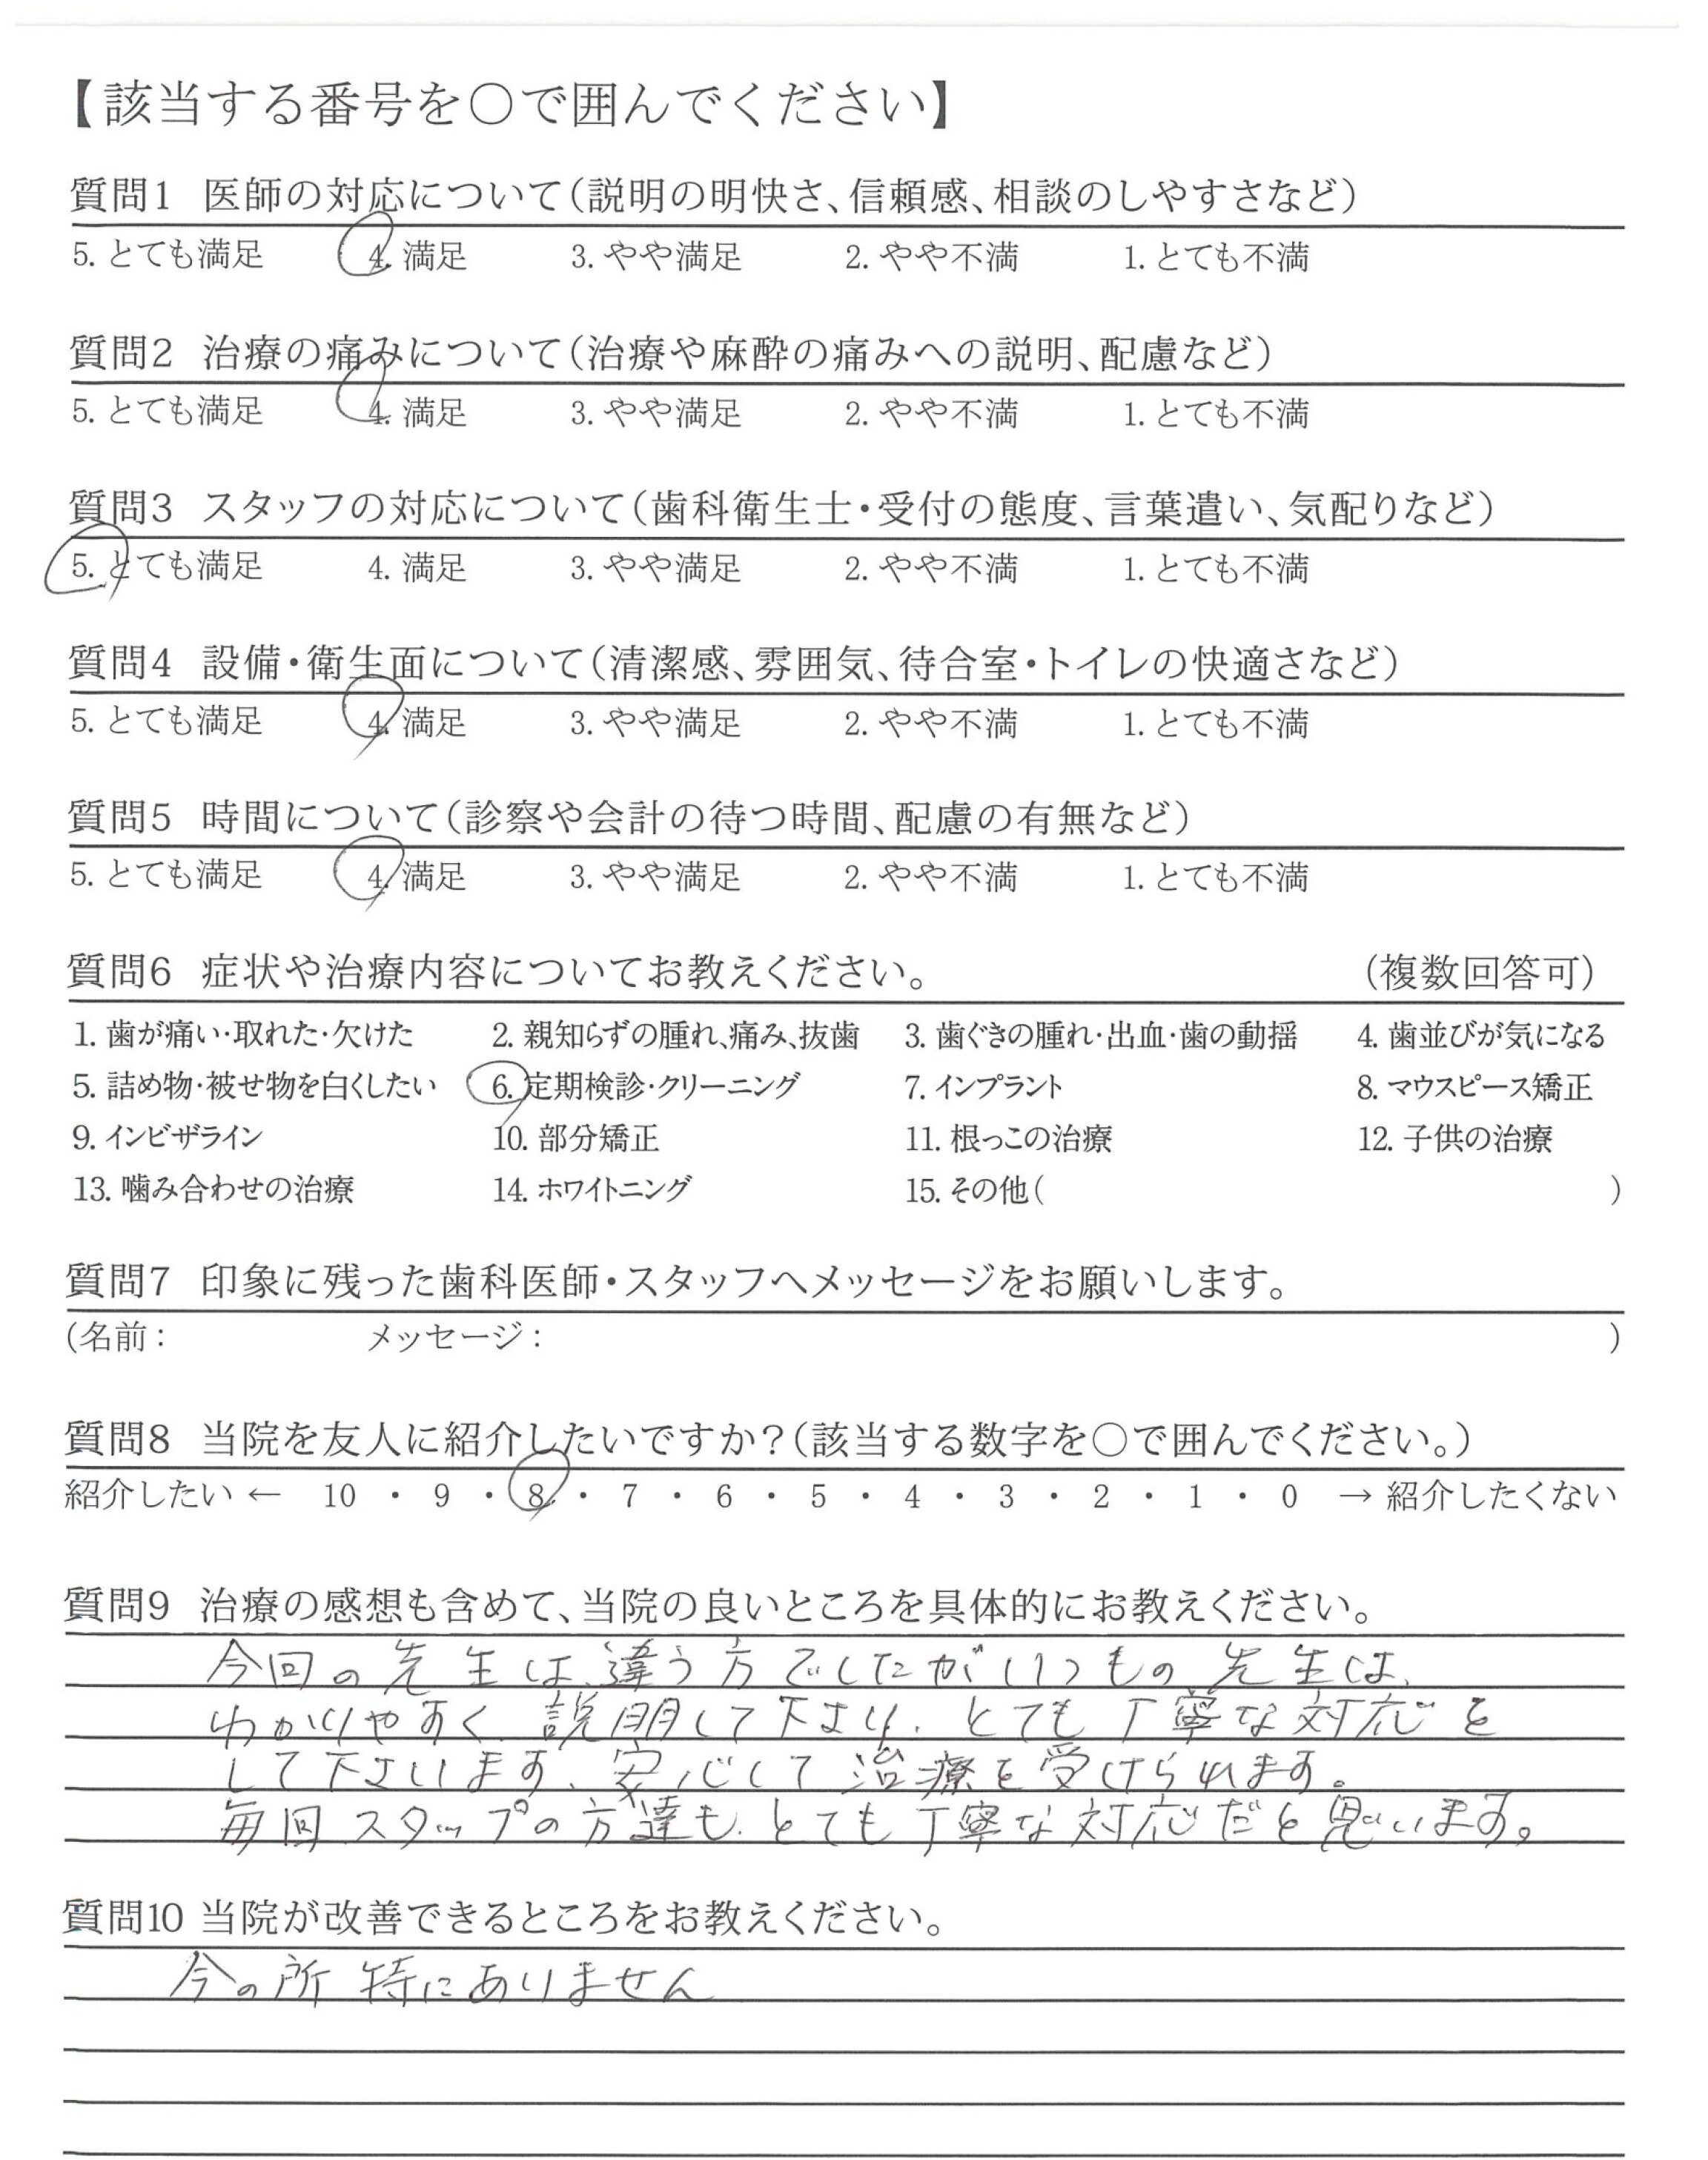 【該当する番号を〇で囲んでください】
質問1 医師の対応について(説明の明快さ、信頼感、相談のしやすさなど)
5. とても満足 4. 満足 3. やや満足 2. やや不満 1. とても不満
質問2 治療の痛みについて(治療や麻酔の痛みへの説明、配慮など)
5. とても満足 4. 満足 3. やや満足 2. やや不満 1. とても不満
質問3 スタッフの対応について(歯科衛生士・受付の態度、言葉遣い、気配りなど)
5. とても満足 4. 満足 3. やや満足 2. やや不満 1. とても不満
質問4 設備・衛生面について(清潔感、雰囲気、待合室・トイレの快適さなど)
5. とても満足 4. 満足 3. やや満足 2. やや不満 1. とても不満
質問5 時間について(診察や会計の待つ時間、配慮の有無など)
5. とても満足 4. 満足 3. やや満足 2. やや不満 1. とても不満
質問6 症状や治療内容についてお教えください。 (複数回答可)
1. 歯が痛い・取れた・欠けた 2. 親知らずの腫れ、痛み、抜歯 3. 歯ぐきの腫れ・出血・歯の動揺 4. 歯並びが気になる
5. 詰め物・被せ物を白くしたい 6. 定期検診・クリーニング 7. インプラント 8. マウスピース矯正
9. インビザライン 10. 部分矯正 11. 根っこの治療 12. 子供の治療
13. 噛み合わせの治療 14. ホワイトニング 15. その他( )
質問7 印象に残った歯科医師・スタッフへメッセージをお願いします。
(名前: メッセージ: )
質問8 当院を友人に紹介したいですか?(該当する数字を〇で囲んでください。)
紹介したい ← 10 ・ 9 ・ 8 ・ 7 ・ 6 ・ 5 ・ 4 ・ 3 ・ 2 ・ 1 ・ 0 → 紹介したくない
質問9 治療の感想も含めて、当院の良いところを具体的にお教えください。
今回の先生は違う方でしたがいつもの先生は、
わかりやすく説明して下さり、とても丁寧な対応を
して下さいます、安心して治療を受けられます。
毎回スタップの方達も、とても丁寧な対応だと思います。
質問10 当院が改善できるところをお教えください。
今の所特にありません